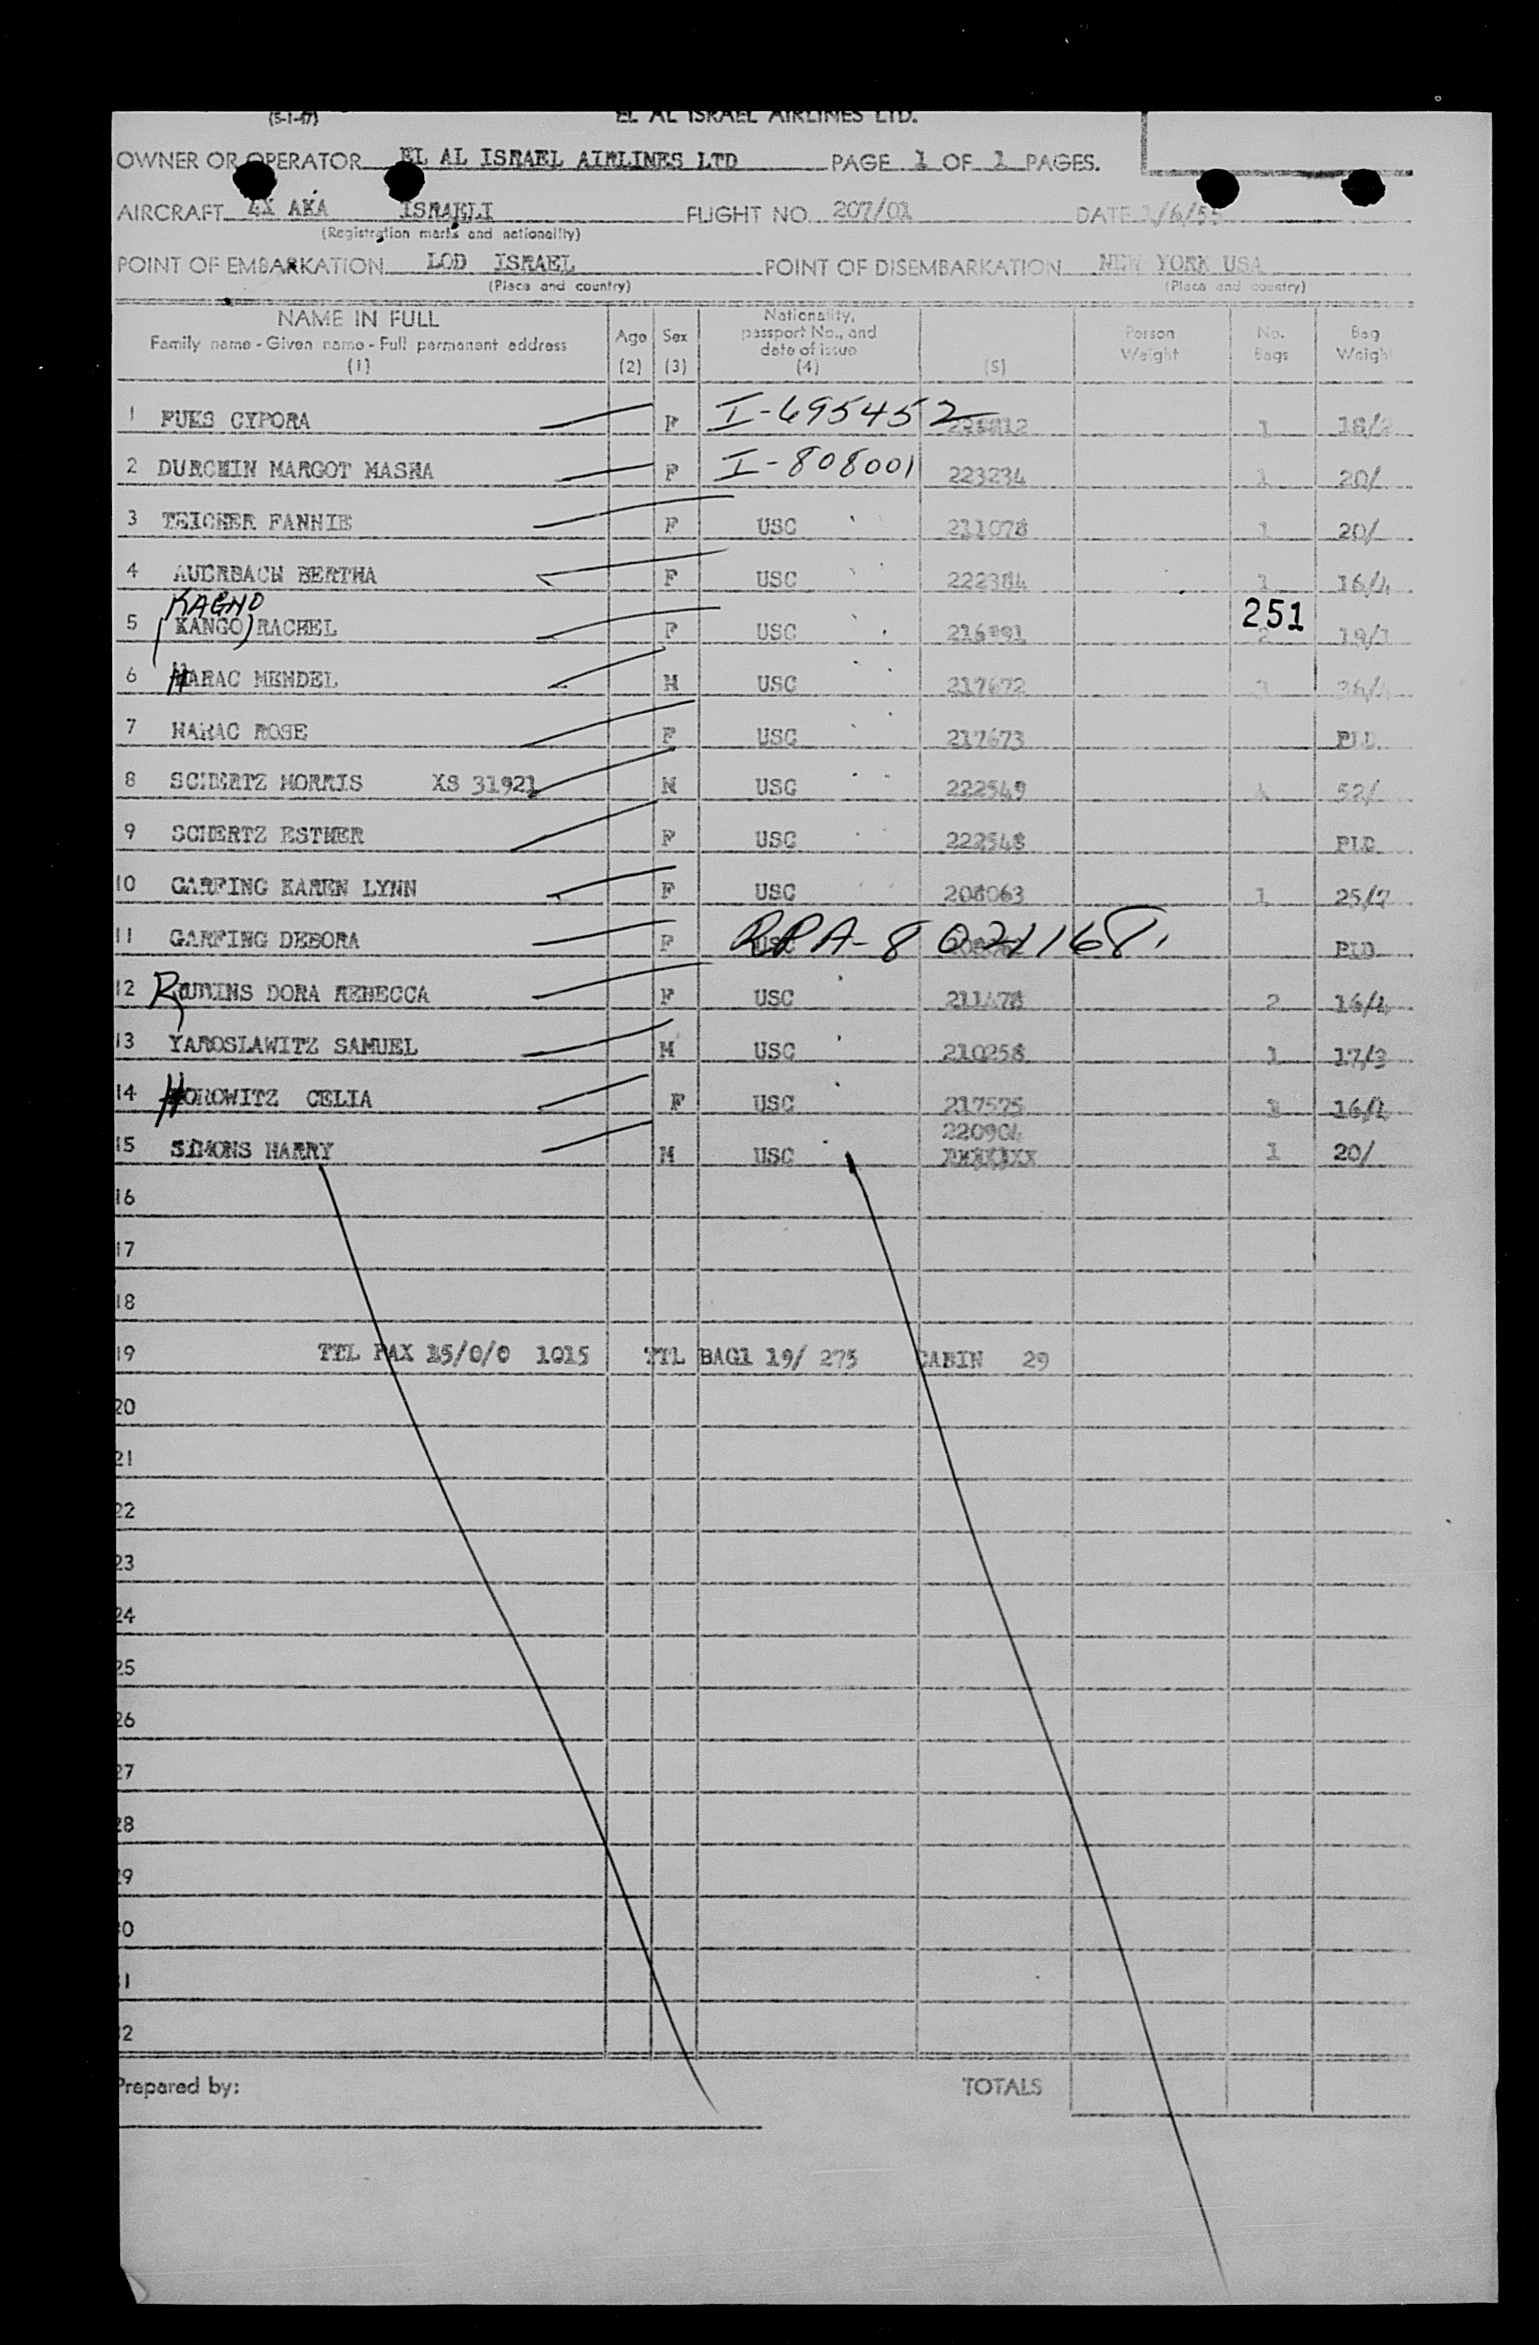 (5-1-47) EL AL ISRAEL AIRLINES LTD.
OWNER OR OPERATOR EL AL ISRAEL AIRLINES LTD PAGE 1 OF 1 PAGES.
AIRCRAFT 4X AKA ISRAELI FLIGHT NO. 207/01 DATE 1/6/55
(Registration marks and nationality)
POINT OF EMBARKATION LOD ISRAEL POINT OF DISEMBARKATION NEW YORK USA
(Place and country) (Place and country)
NAME IN FULL
Family name - Given name - Full permanent address
(1)
Age
(2)
Sex
(3)
Nationality,
passport No., and
date of issue
(4)
(5)
Person
Weight
No.
Bags
Bag
Weight
1 FUKS CYPORA F I-695452 1 18/2
2 DURCHIN MARGOT MASHA F I-808001 223234 1 20/
3 TEICHER FANNIE F USC 211078 1 20/
4 AUERBACH BERTHA F USC 222384 1 16/4
KAGNO
5 (KANGO) RACHEL F USC 2 19/1
251
6 HARAC MENDEL M USC 217672 3 36/4
7 HARAC ROSE F USC 217673 PLD
8 SCHERTZ MORRIS XS 31921 M USC 222549 4 52/
9 SCHERTZ ESTHER F USC 222548 PLD
10 GARFING KAREN LYNN F USC 208063 1 25/7
11 GARFING DEBORA F USC RPA-8021168. PLD
12 RUBINS DORA REBECCA F USC 211478 2 16/4
13 YAROSLAWITZ SAMUEL M USC 210258 1 17/3
14 HOROWITZ CELIA F USC 217575 1 16/4
220904
15 SIMONS HARRY M USC 1 20/
16
17
18
19 TTL PAX 15/0/0 1015 TTL BAG1 19/ 275 CABIN 29
20
21
22
23
24
25
26
27
28
29
30
31
32
Prepared by: TOTALS